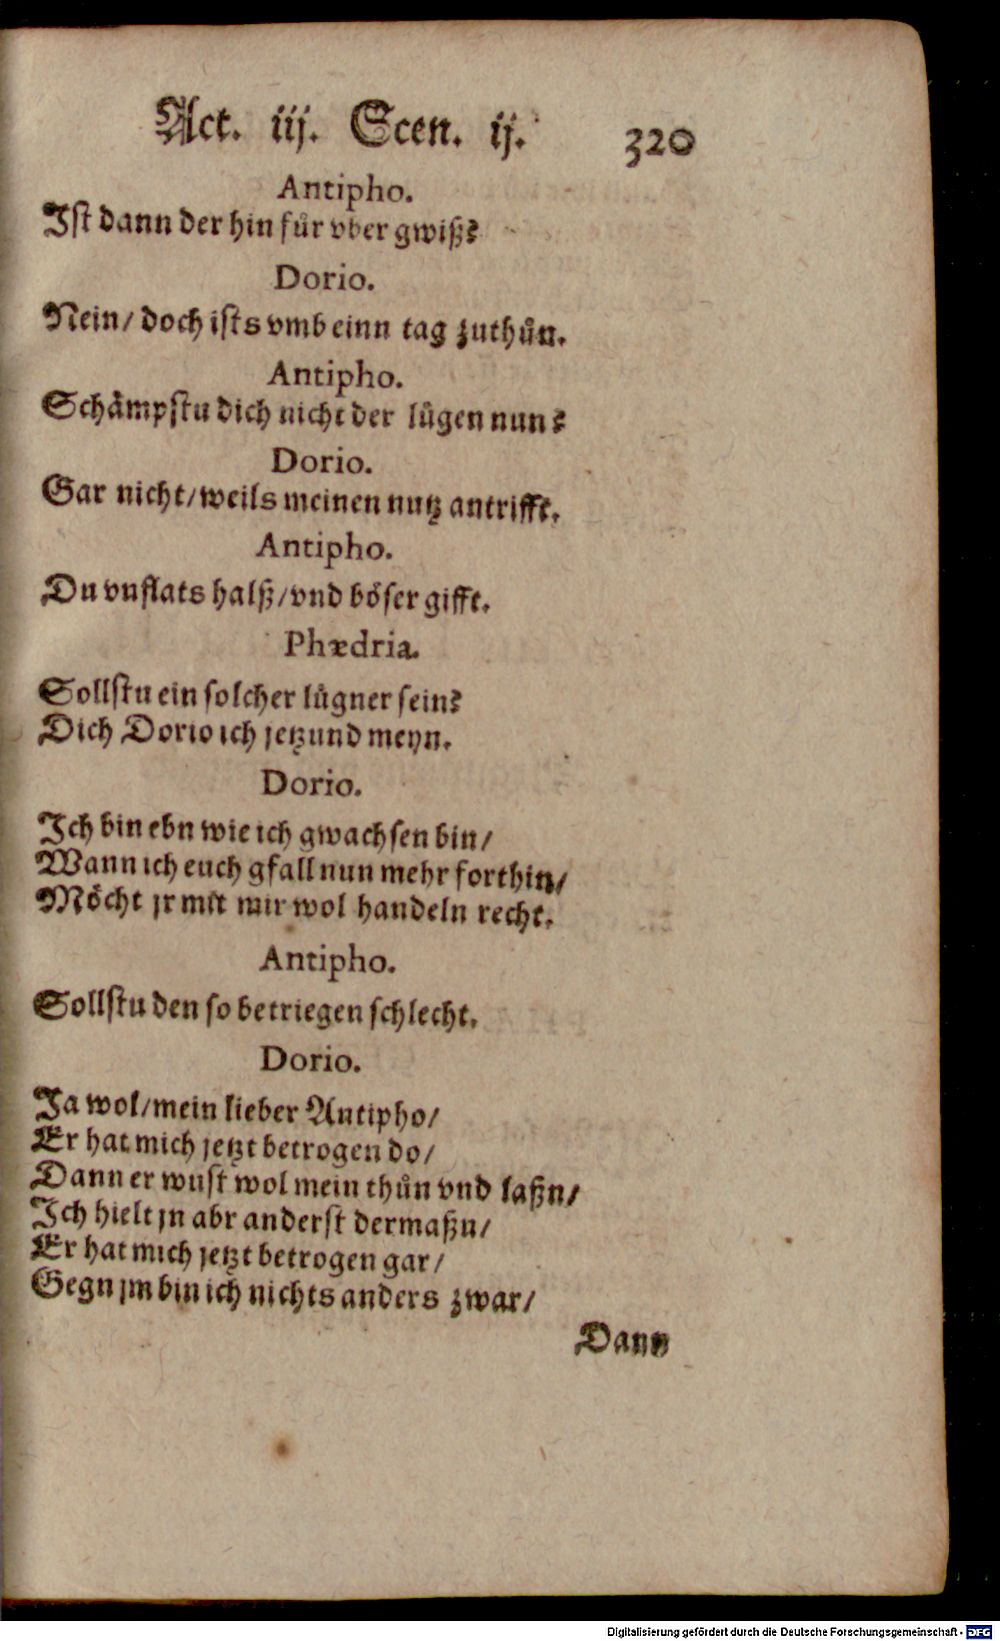 Act. iij. Scen. ij. 320
Antipho.
Ist dann der hin fuͤr vber gwiß?
Dorio.
Nein/ doch ists vmb einn tag zuthuͦn.
Antipho.
Schaͤmpstu dich nicht der luͤgen nun?
Dorio.
Gar nicht/ weils meinen nutz antrifft.
Antipho.
Du vnflats halß/ vnd boͤser gifft.
Phædria.
Sollstu ein solcher luͤgner sein?
Dich Dorio ich jetzund meyn.
Dorio.
Ich bin ebn wie ich gwachsen bin/
Wann ich euch gfall nun mehr forthin/
Moͤcht jr mit mir wol handeln recht.
Antipho.
Sollstu den so betriegen schlecht.
Dorio.
Ja wol/ mein lieber Antipho/
Er hat mich jetzt betrogen do/
Dann er wust wol mein thuͦn vnd laßn/
Ich hielt jn abr anderst dermaßn/
Er hat mich jetzt betrogen gar/
Gegn jm bin ich nichts anders zwar/
Dann
Digitalisierung gefördert durch die Deutsche Forschungsgemeinschaft - DFG